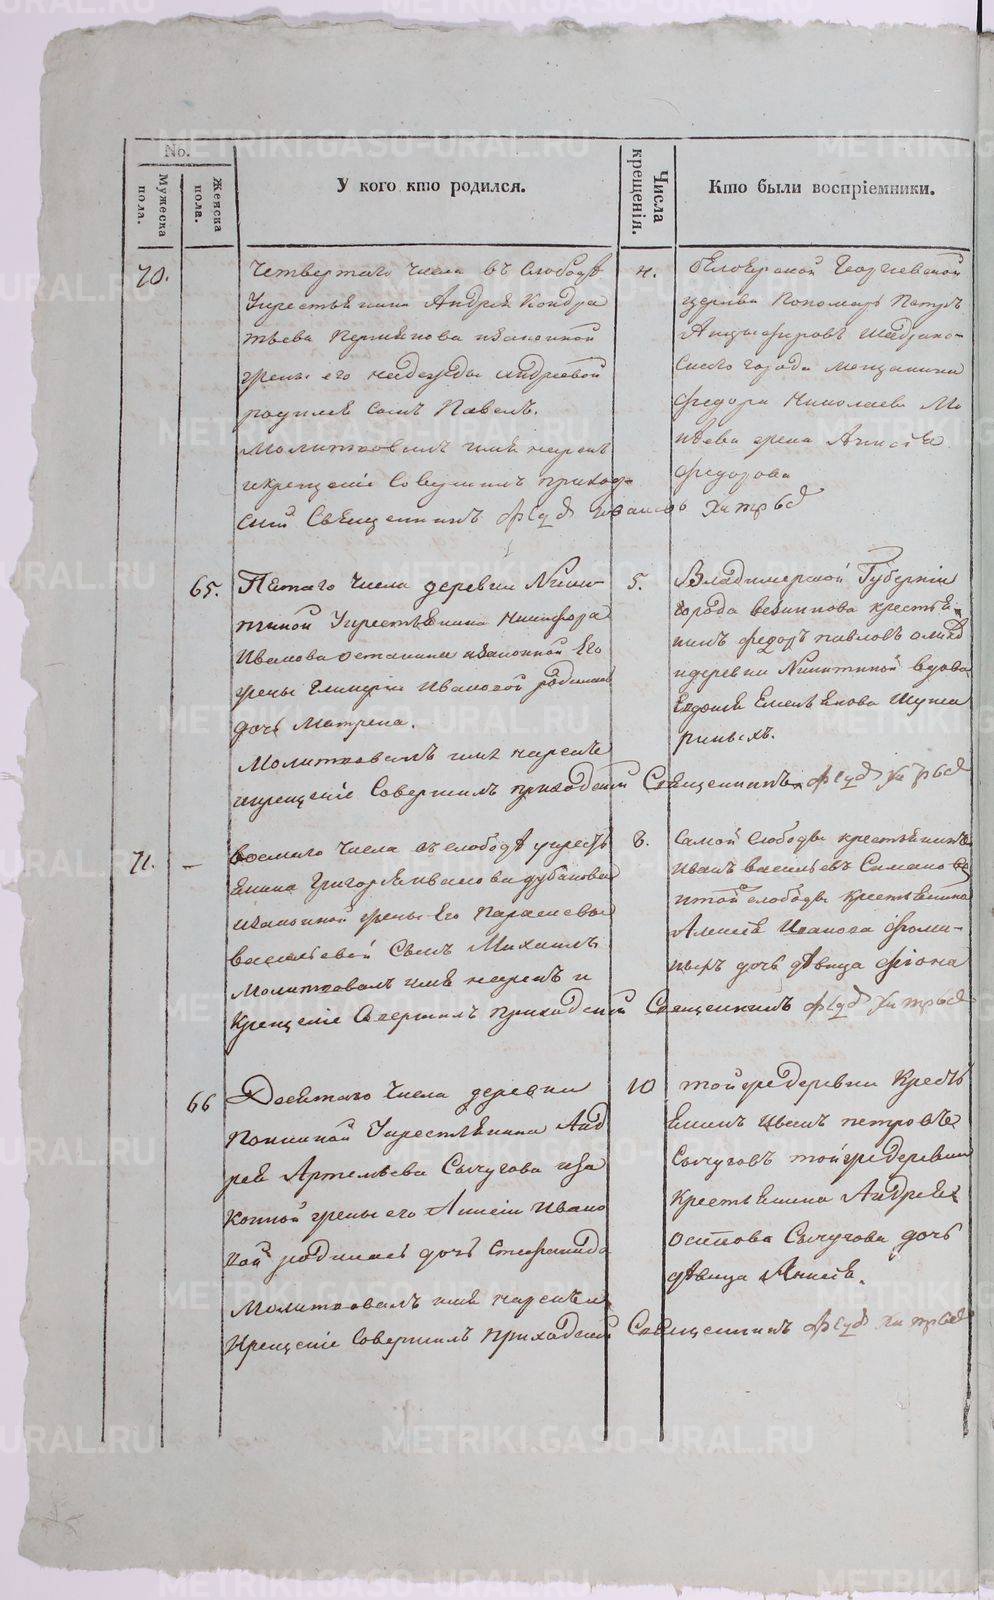 No.
Мужеска пола.
Женска пола.
У кого кто родился.
Числа крещенія.
Кто были воспріемники.
70.
Четвертаго числа въ слободѣ
укрестьянина Андрея Кондра
тьева Пермякова изаконной
жены его надежды андреевой
родился сынъ Павелъ.
Молитвовалъ имя нарекъ
икрещеніе Совершилъ приход-
ской Священникъ
4.
Белоярской Георгіевской
церкви Пономарь Петръ
Анцыферовъ Шадрин-
скаго города мещанина
федора Николаева
жена Анисія
федорова
65.
Пятаго числа деревни Ники-
тиной Укрестьянина Никифора
Иванова Останина изаконной Его
жены Гликеріи Ивановой родилась
дочь Матрена.
Молитвовалъ имя нарекъ
икрещеніе Совершилъ приходской Священникъ
5.
Владимерской Губерніи
города вязникова крестья-
нинъ федоръ павловъ
идеревни Никитиной вдова
Евдокія Емельянова
71.
–
восмаго числа въ слободѣ укресть
янина Григорья иванова дубакова
изаконной жены Его Парасковьи
васильевой Сынъ Михаилъ
Молитвовалъ имя нарекъ и
Крещеніе Совершилъ Приходской Священникъ
8.
Самой слободы крестьянинъ
иванъ васильевъ
итой слободы Крестьянина
Алексѣя Иванова Фоми-
ныхъ дочь дѣвица Фіона
66
Десятаго числа деревни
Укрестьянина Анд
рея Артемьева Сычугова иза
конной жены его Анисіи Ивано
вой родилась дочь Стефанида
Молитвовалъ имя нарекъ и
Крещеніе Совершилъ Приходской Священникъ
10
тойже деревни Кресть
янинъ иванъ петровъ
Сычуговъ тойже деревни
Крестьянина Андрея
осипова Сычугова дочь
дѣвица Анисія.
METRIKI.GASO-URAL.RU